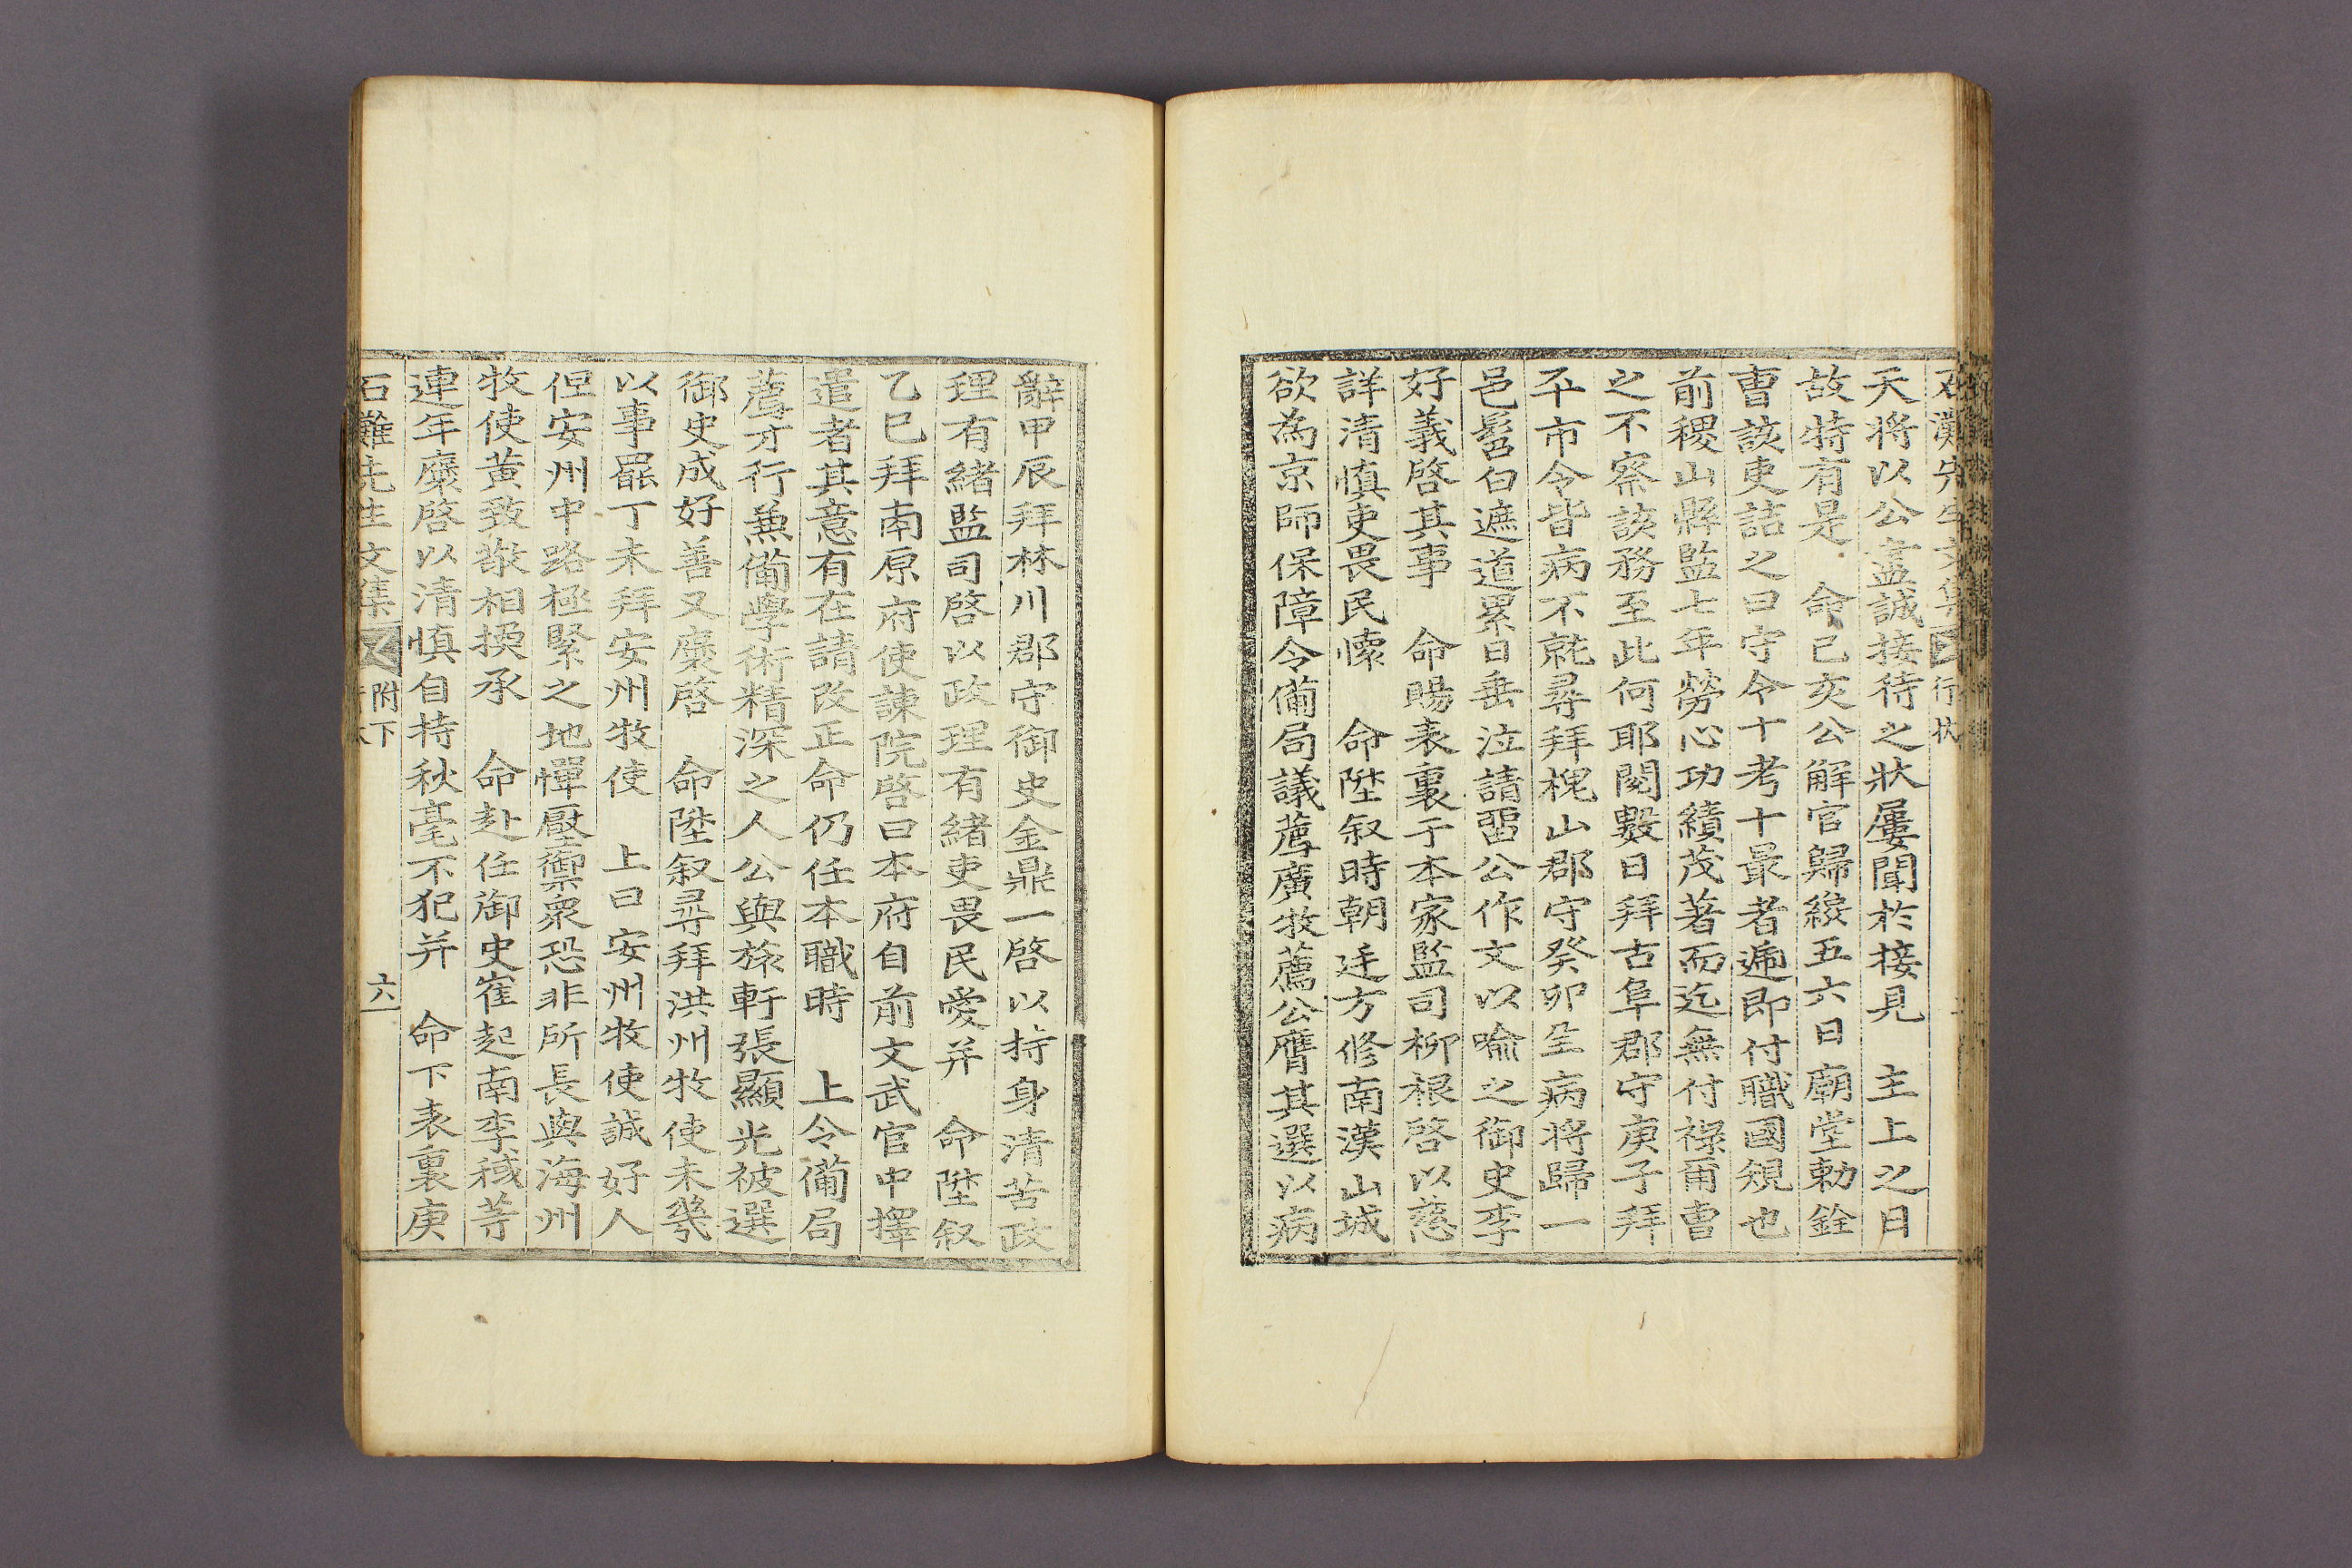 石灘先生文集 行狀
天將以公盡誠接待之狀屢聞於接見 主上之日
故特有是 命己亥公解官歸纔五六日廟堂勅銓
曺該吏詰之曰守令十考十最者遞即付職國規也
前稷山縣監七年勞心功績茂著而迄無付祿爾曺
之不察該務至此何耶閱數日拜古阜郡守庚子拜
平市令皆病不就尋拜槐山郡守癸卯呈病將歸一
邑髫白遮道累日垂泣請留公作文以喩之御史李
好義啓其事 命賜表裏于本家監司柳根啓以慈
詳淸慎吏畏民懷 命陞叙時朝廷方修南漢山城
欲爲京師保障令備局議薦廣牧薦公膺其選以病
辭甲辰拜林川郡守御史金鼎一啓以持身清苦政
理有緖監司啓以政理有緖吏畏民愛并 命陞叙
乙巳拜南原府使諫院啓曰本府自前文武官中擇
遣者其意有在請改正命仍任本職時 上令備局
薦才行兼備學術精深之人公與旅軒張顯光被選
御史成好善又褒啓 命陞叙尋拜洪州牧使未幾
以事罷丁未拜安州牧使 上曰安州牧使誠好人
但安州中路極緊之地憚壓禦衆恐非所長與海州
牧使黃致敬相換承 命赴任御史崔起南李稶等
連年褒啓以清慎自持秋毫不犯并 命下表裏庚
石灘先生文集 附下 六一